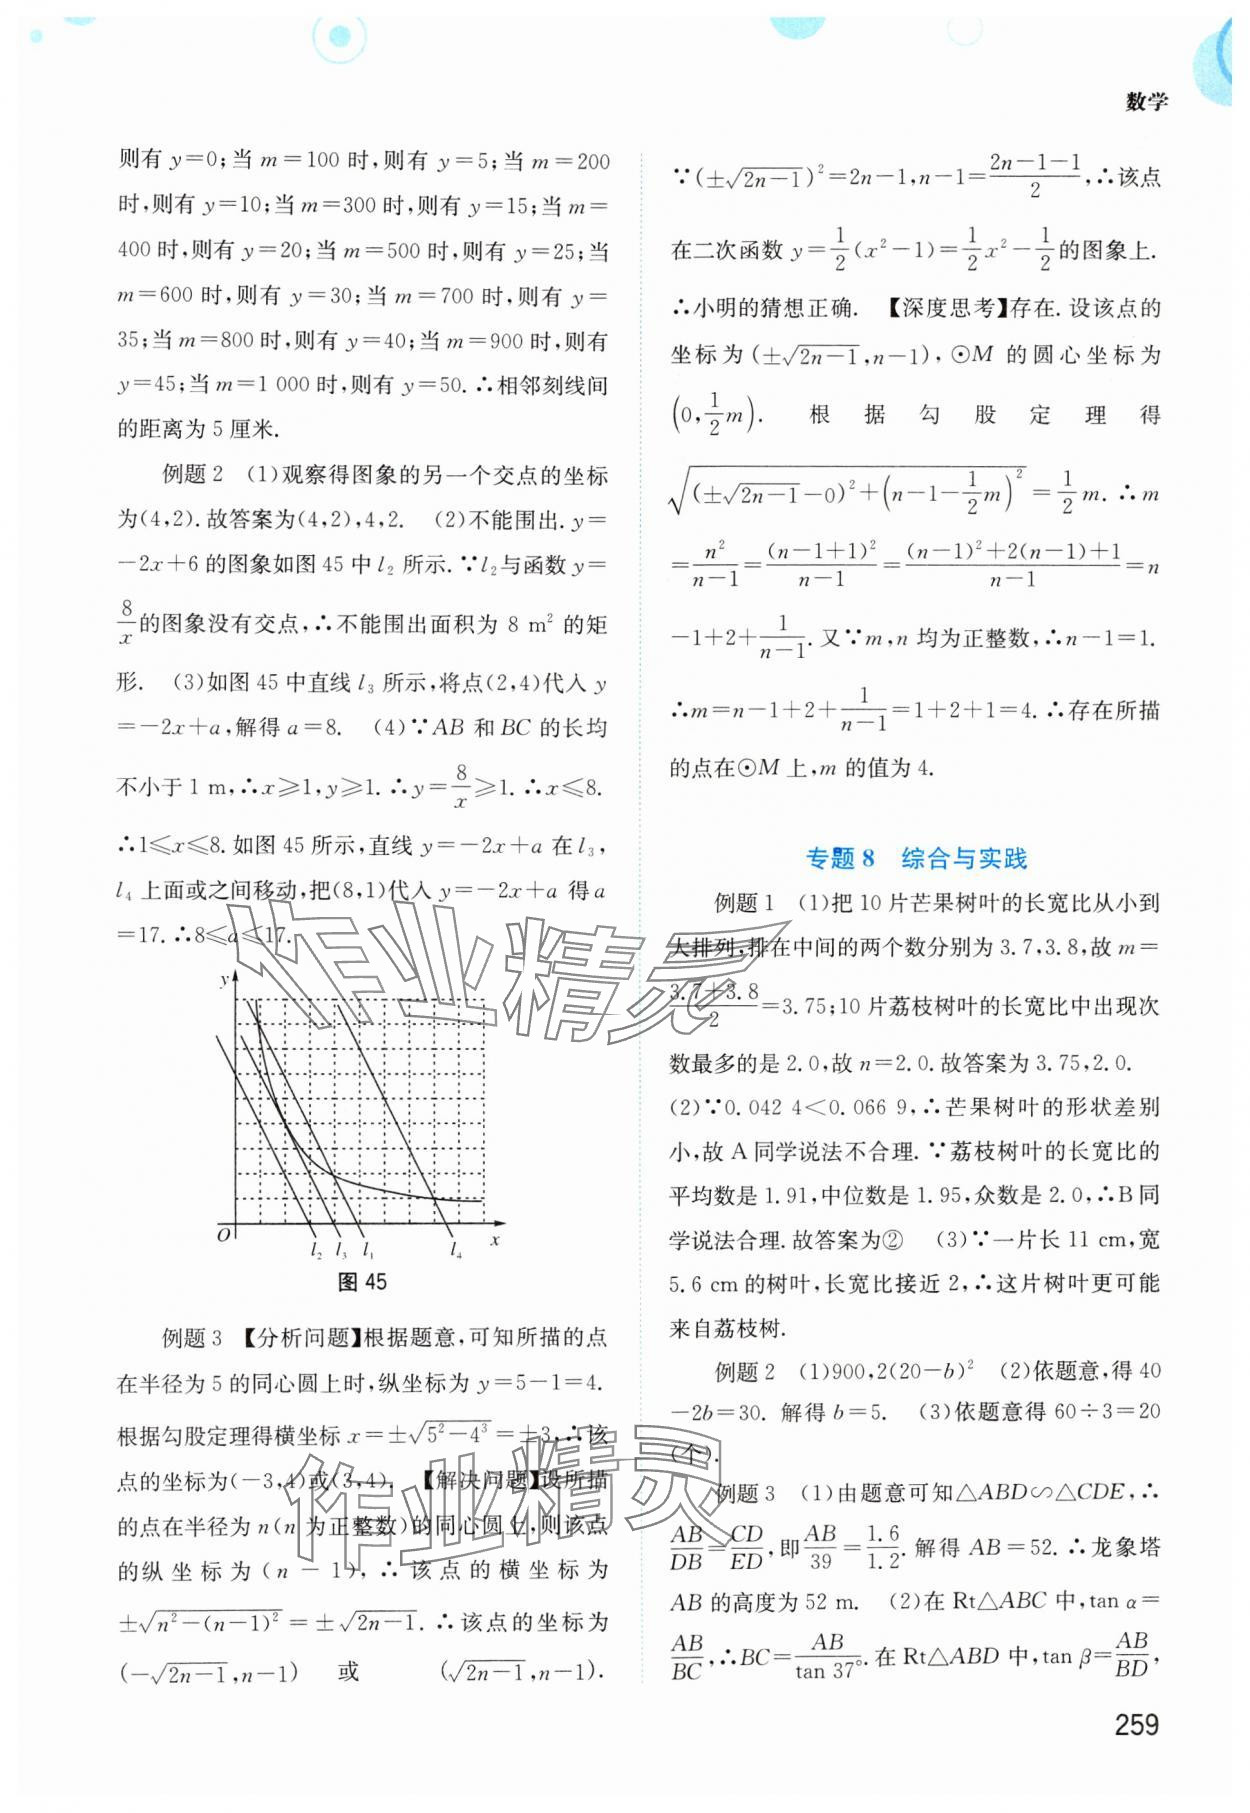 数学
则有 y=0;当 m=100 时,则有 y=5;当 m=200
时,则有 y=10;当 m=300 时,则有 y=15;当 m=
400 时,则有 y=20;当 m=500 时,则有 y=25;当
m=600 时,则有 y=30;当 m=700 时,则有 y=
35;当 m=800 时,则有 y=40;当 m=900 时,则有
y=45;当 m=1 000 时,则有 y=50. ∴相邻刻线间
的距离为 5 厘米.
例题 2 (1)观察得图象的另一个交点的坐标
为(4,2).故答案为(4,2),4,2. (2)不能围出. y=
-2x+6 的图象如图 45 中 l₂ 所示. ∵l₂与函数 y=
8/x 的图象没有交点,∴不能围出面积为 8 m² 的矩
形. (3)如图 45 中直线 l₃ 所示,将点(2,4)代入 y
=-2x+a,解得 a=8. (4)∵AB 和 BC 的长均
不小于 1 m,∴x≥1,y≥1. ∴y=8/x≥1. ∴x≤8.
∴1≤x≤8. 如图 45 所示,直线 y=-2x+a 在 l₃,
l₄ 上面或之间移动,把(8,1)代入 y=-2x+a 得 a
=17. ∴8≤a≤17.
y
O
l₂ l₃ l₁ l₄ x
图 45
例题 3 【分析问题】根据题意,可知所描的点
在半径为 5 的同心圆上时,纵坐标为 y=5-1=4.
根据勾股定理得横坐标 x=±√(5²-4³)=±3,∴该
点的坐标为(-3,4)或(3,4). 【解决问题】设所描
的点在半径为 n(n 为正整数)的同心圆上,则该点
的纵坐标为(n-1),∴该点的横坐标为
±√(n²-(n-1)²)=±√(2n-1). ∴该点的坐标为
(-√(2n-1),n-1) 或 (√(2n-1),n-1).
∵(±√(2n-1))²=2n-1,n-1=(2n-1-1)/2,∴该点
在二次函数 y=1/2(x²-1)=1/2x²-1/2的图象上.
∴小明的猜想正确. 【深度思考】存在. 设该点的
坐标为(±√(2n-1),n-1),⊙M 的圆心坐标为
(0,1/2m). 根据勾股定理得
√((±√(2n-1)-0)²+(n-1-1/2m)²)=1/2m. ∴m
=n²/(n-1)=(n-1+1)²/(n-1)=((n-1)²+2(n-1)+1)/(n-1)=n
-1+2+1/(n-1). 又∵m,n 均为正整数,∴n-1=1.
∴m=n-1+2+1/(n-1)=1+2+1=4. ∴存在所描
的点在⊙M 上,m 的值为 4.
专题 8 综合与实践
例题 1 (1)把 10 片芒果树叶的长宽比从小到
大排列,排在中间的两个数分别为 3.7,3.8,故 m=
(3.7+3.8)/2=3.75;10 片荔枝树叶的长宽比中出现次
数最多的是 2.0,故 n=2.0. 故答案为 3.75,2.0.
(2)∵0.042 4<0.066 9,∴芒果树叶的形状差别
小,故 A 同学说法不合理. ∵荔枝树叶的长宽比的
平均数是 1.91,中位数是 1.95,众数是 2.0,∴B 同
学说法合理. 故答案为② (3)∵一片长 11 cm,宽
5.6 cm 的树叶,长宽比接近 2,∴这片树叶更可能
来自荔枝树.
例题 2 (1)900,2(20-b)² (2)依题意,得 40
-2b=30. 解得 b=5. (3)依题意得 60÷3=20
(个).
例题 3 (1)由题意可知△ABD∽△CDE,∴
AB/DB=CD/ED,即 AB/39=1.6/1.2. 解得 AB=52. ∴龙象塔
AB 的高度为 52 m. (2)在 Rt△ABC 中,tan α=
AB/BC,∴BC=AB/tan 37°. 在 Rt△ABD 中,tan β=AB/BD,
259
作业精灵
作业精灵